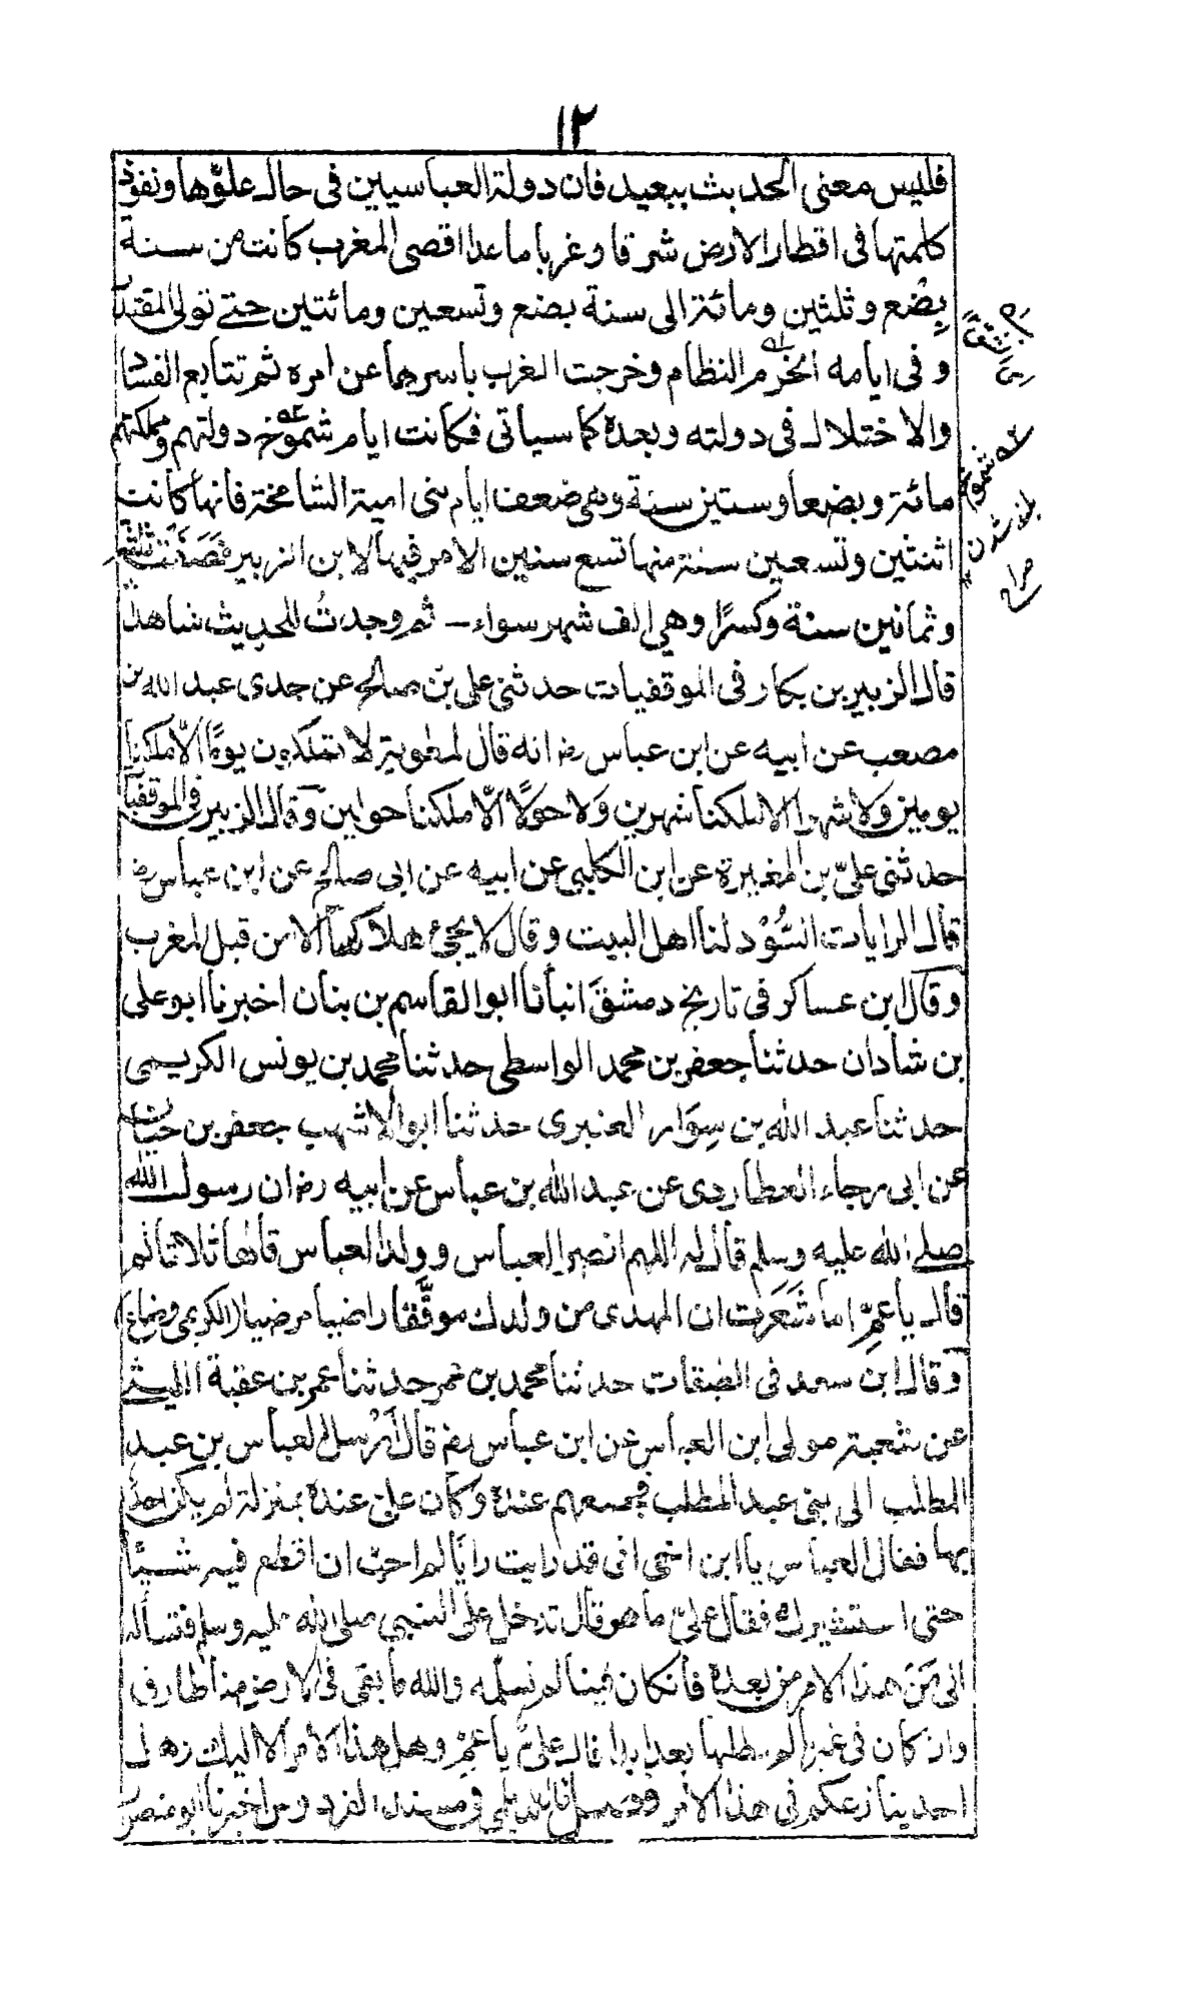 ١٢
فليس معنى الحديث ببعيد فان دولة العباسيين فى حال علوّها ونفوذ
كلمتها فى اقطار الارض شرقا وغربا ما عدا اقصى المغرب كانت من سنة
بِضْع وثلثين ومائة الى سنة بضع وتسعين ومائتين حتے تولى المقتدر
وفى ايامه انخرم النظام وخرجت المغرب باسرها عن امره ثم تتابع الفساد
والاختلال فى دولته وبعده كما سياتى فكانت ايام شموخ دولتهم ومملكتهم
مائة وبضعا وستين سنة وهى ضعف ايام بنى امية الشامخة فانها كانت
اثنتين وتسعين سنة منها تسع سنين الامر فيها لابن الزبير فصفت ثلثة
وثمانين سنة وكسرًا وهي الف شهر سواء – ثم وجدتُ للحديث شاهدا
قال الزبير بن بكار فى الموقفيات حدثنى على بن صالح عن جدى عبد الله بن
مصعب عن ابيه عن ابن عباس رضـ انه قال لمعوية لا تملكون يومًا الّا ملكنا
يومين ولا شهرا الا ملكنا شهرين ولا حولًا الّا ملكنا حولين وقال الزبير فى الموقفيات
حدثنى علىّ بن المغيرة عن ابن الكلبى عن ابيه عن ابى صالح عن ابن عباس رضـ
قال الرايات السُّوْد لنا اهل البيت وقال لا يجئ هلاكها الا من قبل المغرب
وقال ابن عساكر فى تاريخ دمشق انبأنا ابو القاسم بن بنان اخبرنا ابو على
بن شاذان حدثنا جعفر بن محمد الواسطى حدثنا محمد بن يونس الكريمى
حدثنا عبد الله بن سِوَار العنبرى حدثنا ابو الاشهب جعفر بن حيان
عن ابى رجاء العطاردى عن عبد الله بن عباس عن ابيه رضـ ان رسول الله
صلے الله عليه وسلم قال له اللهم انصر العباس وولد العباس قالها ثلاثا ثم
قال يا عمِّ اما شَعَرت ان المهدى من ولدك موفَّقا راضيا مرضيا (الكريمى وضاع)
وقال ابن سعد فى الطبقات حدثنا محمد بن عمر حدثنا عمر بن عقبة الليثے
عن شعبة مولى ابن العباس عن ابن عباس رضـ قال اَرْسل العباس بن عبد
المطلب الى بنى عبد المطلب فجمعهم عنده وكان علىّ عنده بمنزلة لم يكن احد
بها فقال العباس يا ابن اخى انى قد رايت رايا لم احب ان اقطع فيه شيئًا
حتى استشيرك فقال علىّ ما هو قال تدخل على النبى صلى الله عليه وسلم فتسأله
الى مَنْ هذا الامر من بعده فان كان فينا لم نسلّمه والله ما بقى فى الارض منا طارف
وان كان فى غيرنا لم نطلبها بعد ابدا قال علىّ يا عمِّ وهل هذا الامر الا اليك وهل
احد ينازعكم فى هذا الامر قال الديلمى فى مسند الفردوس اخبرنا ابو منصور
شموخ
بلند شدن
صراح